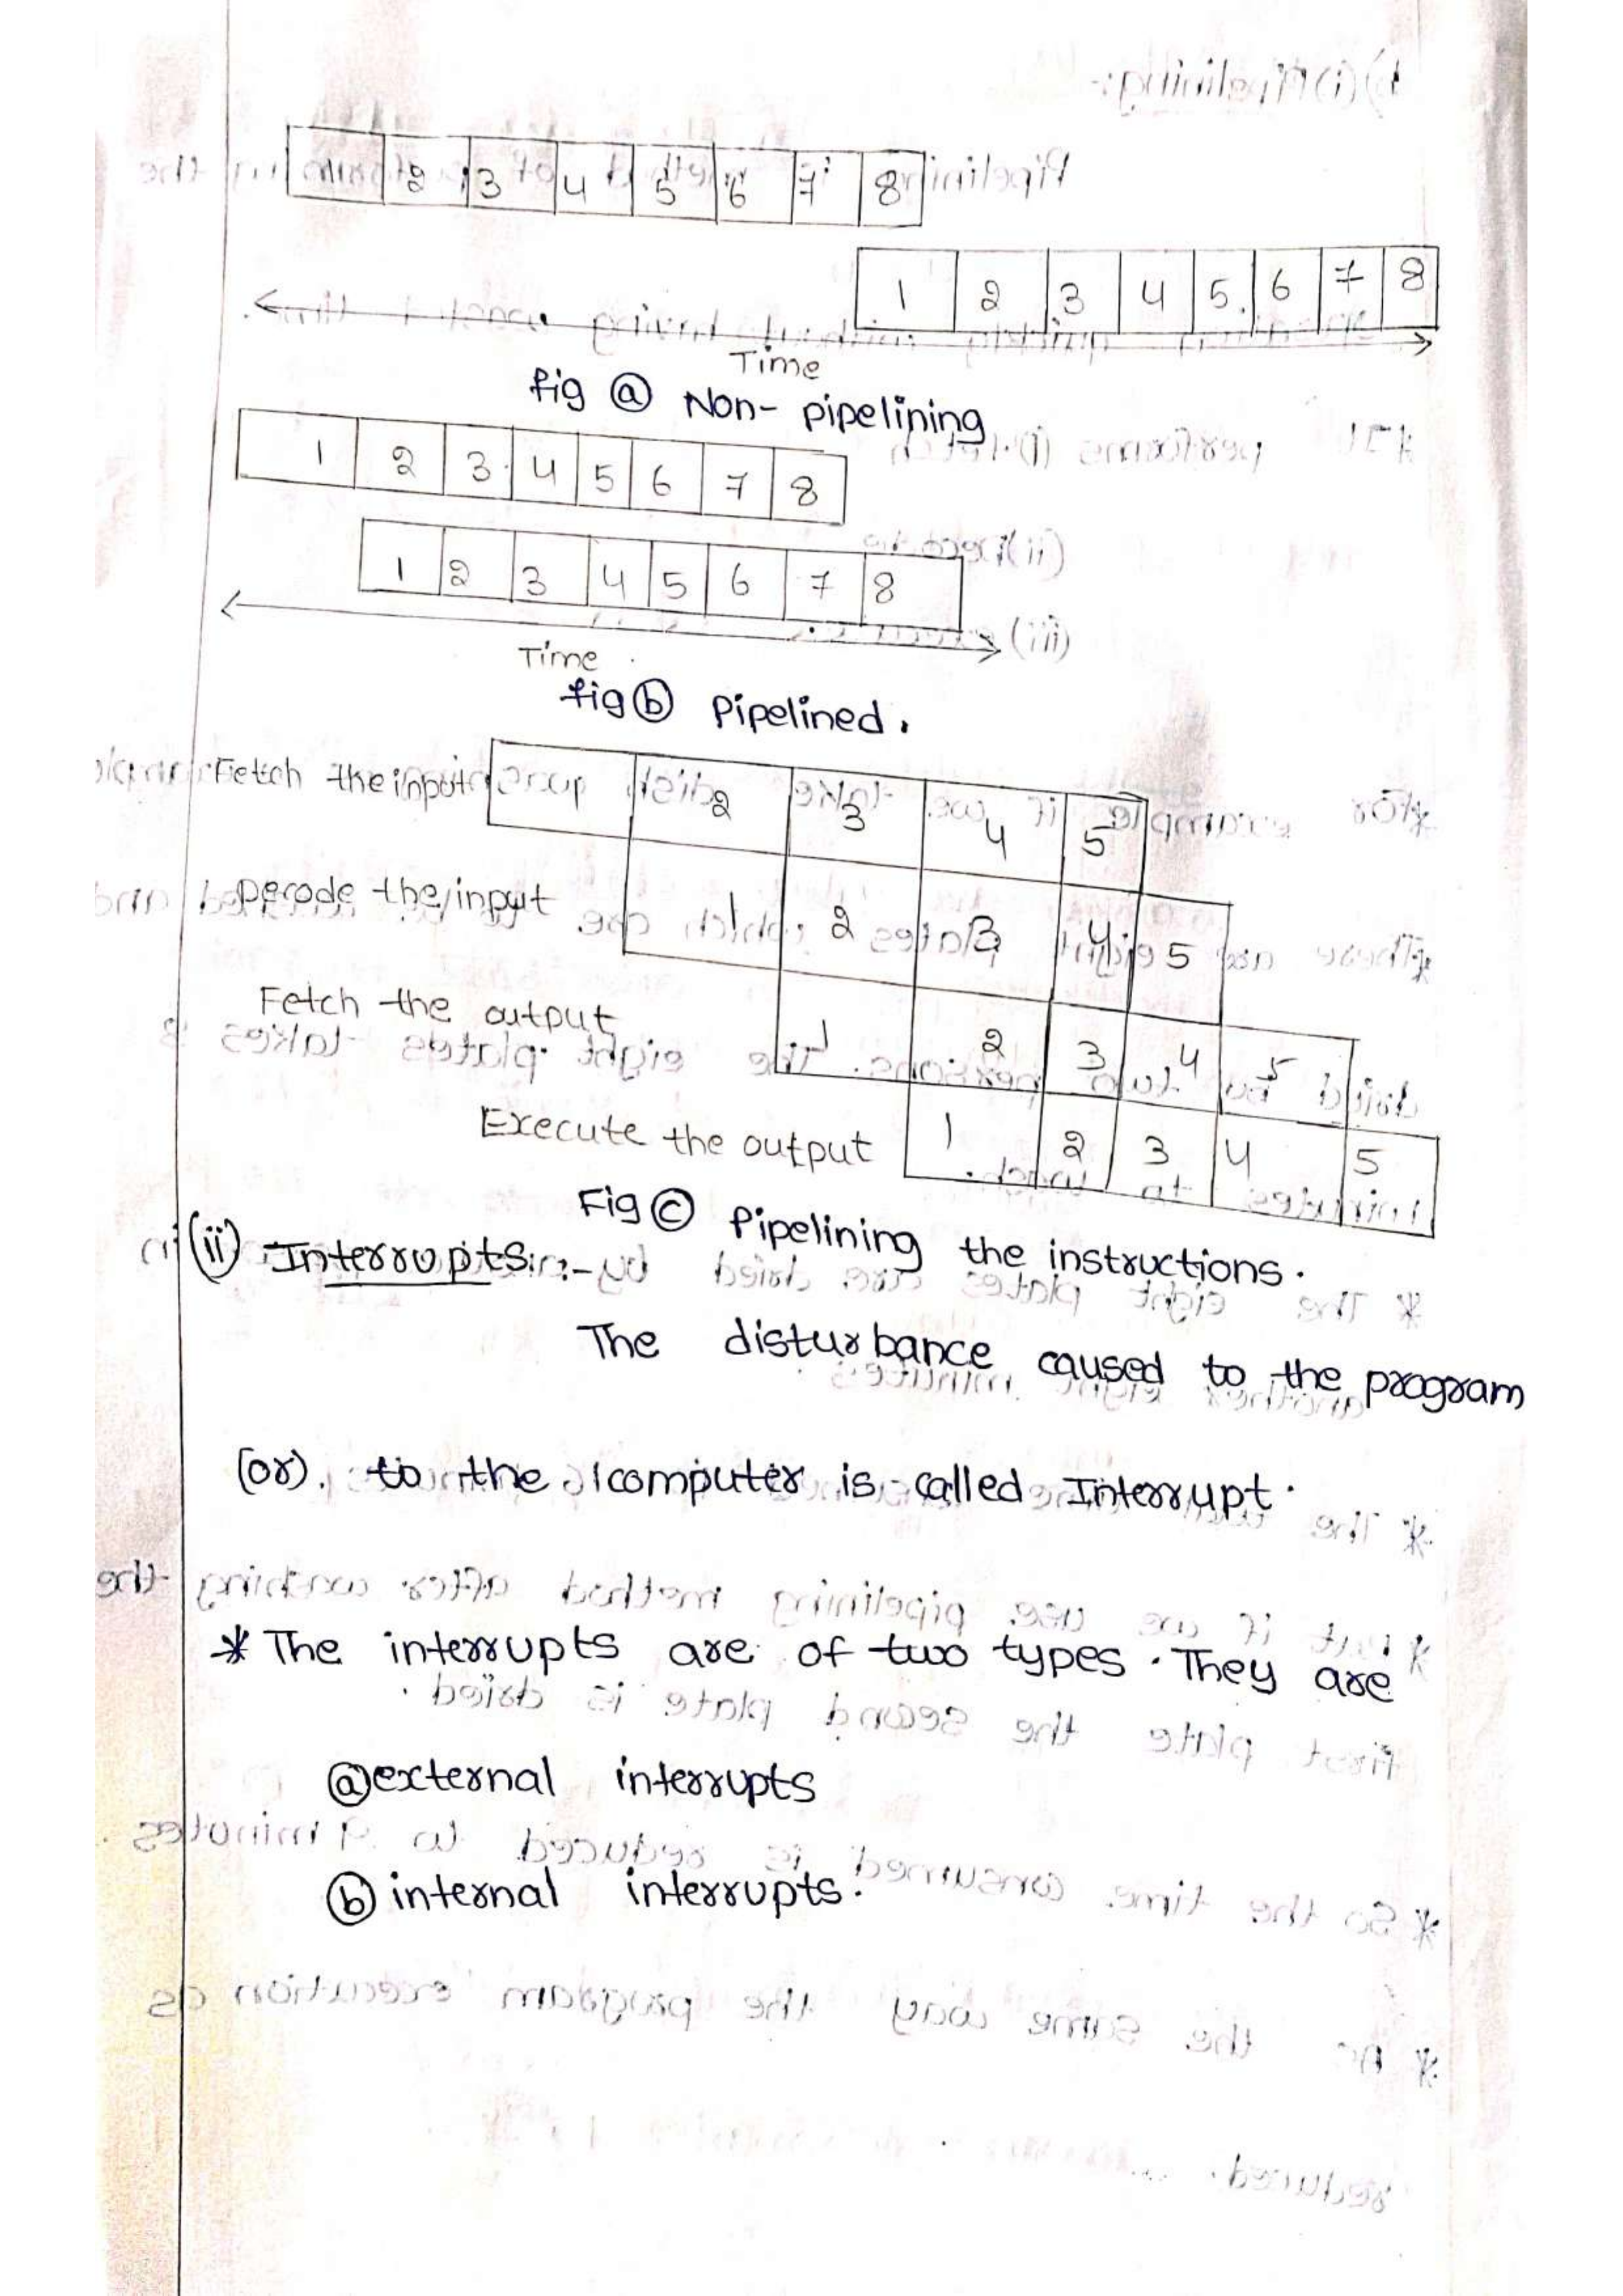 2 3 4 5 6 7 8
1 2 3 4 5 6 7 8
Time
fig ⓐ Non- pipelining
1 2 3 4 5 6 7 8
1 2 3 4 5 6 7 8
Time
fig ⓑ Pipelined.
Fetch the input 2 3 4 5
Decode the input 1 2 3 4 5
Fetch the output 1 2 3 4 5
Execute the output 1 2 3 4 5
Fig ⓒ Pipelining the instructions.
(ii) Interrupts :-
The disturbance caused to the program
(or). to the computer is called Interrupt.
* The interrupts are of two types. They are
ⓐ external interrupts
ⓑ internal interrupts.